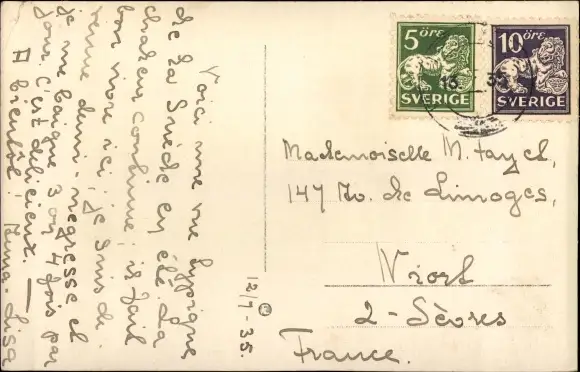 Voici une vue typique
de la Suède en été. La
chaleur continue, il fait
bon vivre ici; je suis de-
venue demi-négresse et
je me baigne 3 ou 4 fois par
jour. C'est délicieux. —
A bientôt. Anna-Lisa
12/7-35.
5 öre
SVERIGE
10 öre
SVERIGE
Mademoiselle M. Fayet,
147 Av. de Limoges,
Niort
2-Sèvres
France.